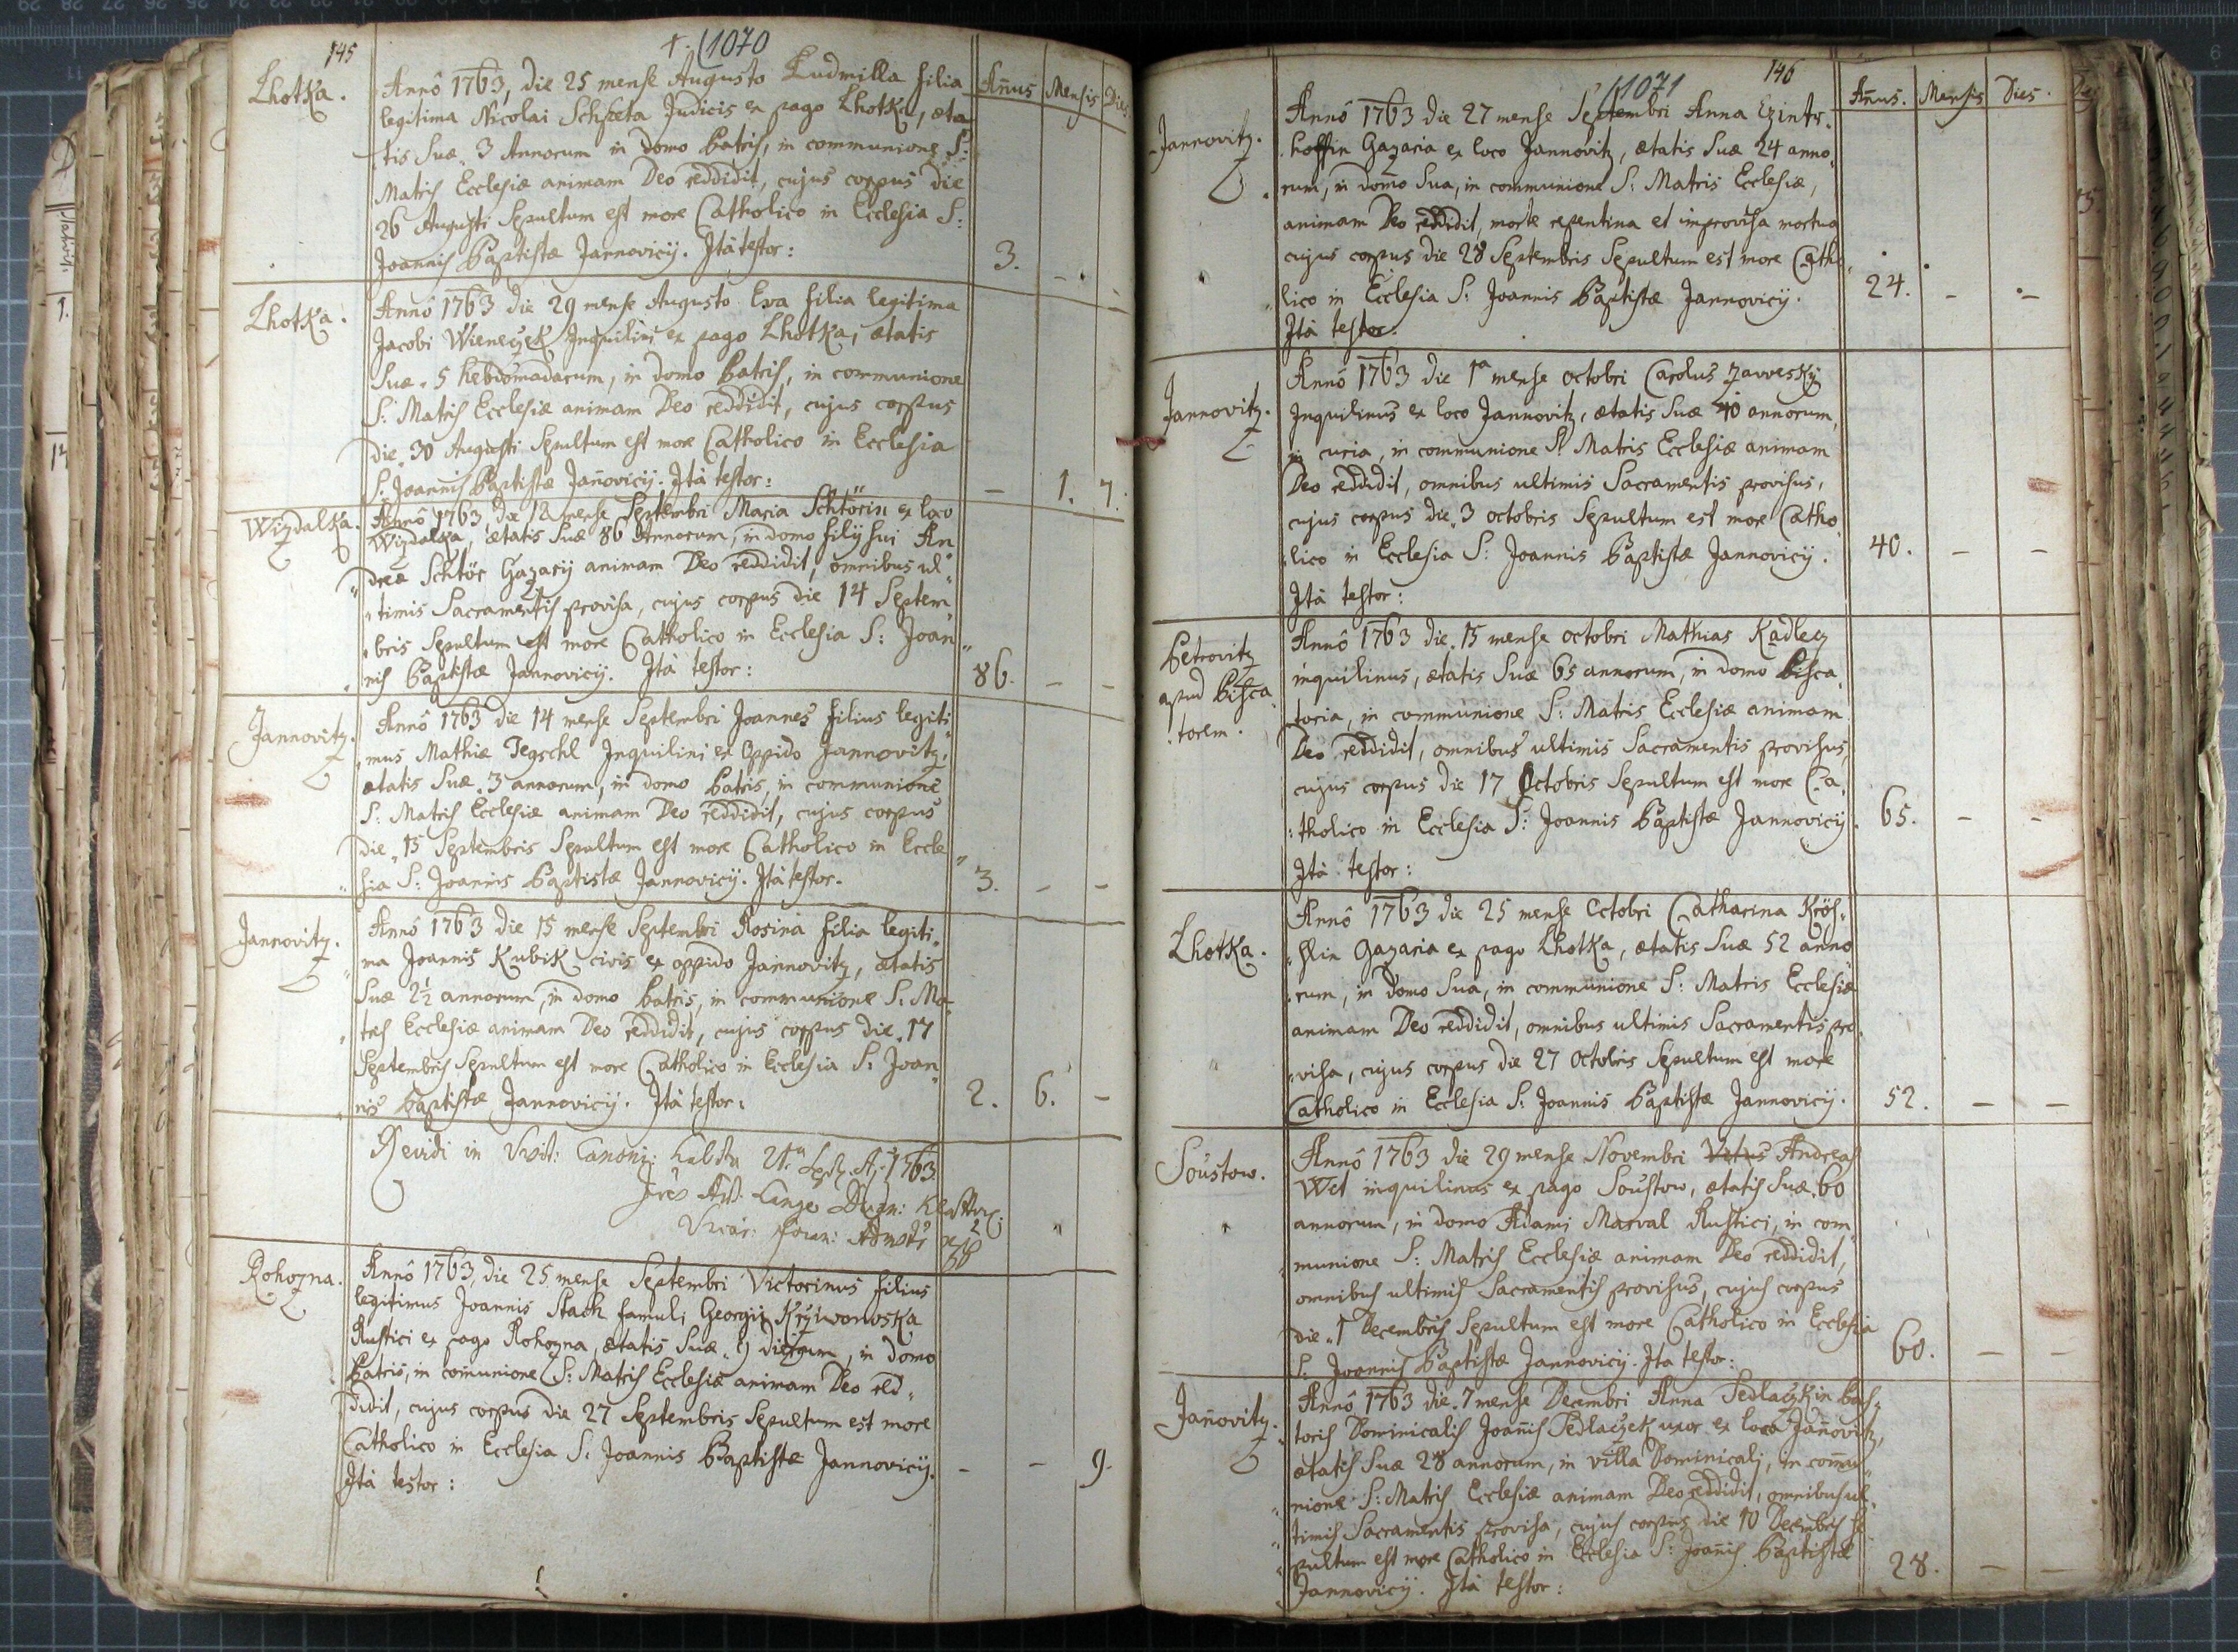 145
+. 1070
Annus Mensis Dies
Lhotka.
Annô 1763, die 25 mense Augusto Ludmilla filia
legitima Nicolai Judicis ex pago Lhotka, æta
tis Suæ 3 Annorum in domo Patris, in communione S:
Matris Ecclesiæ animam Deo reddidit, cujus corpus die
26 Augusti Sepultum est more Catholico in Ecclesia S:
Joannis Baptistæ Jannovicij. Ità testor:
3. - -
Lhotka.
Annô 1763 die 29 mense Augusto Eva filia legitima
Jacobi Wieneczek Inquilini ex pago Lhotka, ætatis
Suæ 5 hebdomadarum, in domo Patris, in communione
S: Matris Ecclesiæ animam Deo reddidit, cujus corpus
die 30 Augusti Sepultum est more Catholico in Ecclesia
S: Joannis Baptistæ Jañovicij. Ità testor:
- 1. 7.
Wizdalka.
Annô 1763, die 12 mense Septembri Maria Schtörin ex loco
Wizdalka, ætatis Suæ 86 Annorum, in domo filij sui An
dreæ Schtör Gazarij animam Deo reddidit, omnibus ul
timis Sacramentis provisa, cujus corpus die 14 Septem
bris Sepultum est more Catholico in Ecclesia S: Joan
nis Baptistæ Jannovicij. Ità testor:
86. - -
Jannovitz.
Annô 1763 die 14 mense Septembri Joannes filius legiti
mus Mathiæ Tegschl Inquilini ex Oppido Jannovitz,
ætatis Suæ 3 annorum, in domo Patris, in communione
S: Matris Ecclesiæ animam Deo reddidit, cujus corpus
die 15 Septembris Sepultum est more Catholico in Eccle
sia S: Joannis Baptistæ Jannovicij. Ità testor.
3. - -
Jannovitz.
Annô 1763 die 15 mense Septembri Rosina filia legiti
ma Joannis Kubik civis ex oppido Jannovitz, ætatis
Suæ 2½ annorum, in domo Patris, in communione S: Ma
tris Ecclesiæ animam Deo reddidit, cujus corpus die 17
Septembris Sepultum est more Catholico in Ecclesia S: Joan
nis Baptistæ Jannovicij. Ità testor:
2. 6. -
Revidi in Visit: Canoni: 1763.
Lange
Vicar: foran:
Rohozna.
Annô 1763, die 25 mense Septembri Victorinus filius
legitimus Joannis Stach famuli Georgii Krziwanoska
Rustici ex pago Rohozna, ætatis Suæ 9 dierum, in domo
Patris, in comunione S: Matris Ecclesiæ animam Deo red
didit, cujus corpus die 27 Septembris Sepultum est more
Catholico in Ecclesia S: Joannis Baptistæ Jannovicij.
Ità testor:
- - 9.
1071
146
Añus. Mensis Dies.
Jannovitz.
Annô 1763 die 27 mense Septembri Anna Czinter
hoffin Gazaria ex loco Jannovitz, ætatis Suæ 24 anno
rum, in domo Sua, in communione S: Matris Ecclesiæ,
animam Deo reddidit, morte repentina et improvisa mortua
cujus corpus die 28 Septembris Sepultum est more Catho
lico in Ecclesia S: Joannis Baptistæ Jannovicij.
Ità testor:
24. - -
Jannovitz.
Annô 1763 die 1ª mense Octobri Carolus Zavvesky
Inquilinus ex loco Jannovitz, ætatis Suæ 40 annorum,
in curia, in communione S: Matris Ecclesiæ animam
Deo reddidit, omnibus ultimis Sacramentis provisus,
cujus corpus die 3 octobris Sepultum est more Catho
lico in Ecclesia S: Joannis Baptistæ Jannovicij.
Ità testor:
40. - -
Petrovitz
apud Pisca
torem.
Annô 1763 die 15 mense octobri Mathias Kadlez
inquilinus, ætatis Suæ 65 annorum, in domo Pisca
toria, in communione S: Matris Ecclesiæ animam
Deo reddidit, omnibus ultimis Sacramentis provisus,
cujus corpus die 17 Octobris Sepultum est more Ca
tholico in Ecclesia S: Joannis Baptistæ Jannovicij.
Ità testor:
65. - -
Lhotka.
Annô 1763 die 25 mense Octobri Catharina Krös
slin Gazaria ex pago Lhotka, ætatis Suæ 52 anno
rum, in domo Sua, in communione S: Matris Ecclesiæ
animam Deo reddidit, omnibus ultimis Sacramentis pro
visa, cujus corpus die 27 Octobris Sepultum est more
Catholico in Ecclesia S: Joannis Baptistæ Jannovicij.
52. - -
Soustow.
Annô 1763 die 29 mense Novembri Andreas
Wet inquilinus ex pago Soustow, ætatis Suæ 60
annorum, in domo Adami Marval Rustici, in com
munione S: Matris Ecclesiæ animam Deo reddidit,
omnibus ultimis Sacramentis provisus, cujus corpus
die 1 Decembris Sepultum est more Catholico in Ecclesia
S: Joannis Baptistæ Jannovicij. Ita testor:
60. - -
Jañovitz.
Annô 1763 die 7 mense Decembri Anna Sedlaczkin Pas
toris Dominicalis Joañis Sedlaczek uxor ex loco Jañovitz,
ætatis Suæ 28 annorum, in villa Dominicali, in comu
nione S: Matris Ecclesiæ animam Deo reddidit, omnibus ul
timis Sacramentis provisa, cujus corpus die 10 Decembris se
pultum est more Catholico in Ecclesia S: Joañis Baptistæ
Jannovicij. Ità testor:
28. - -